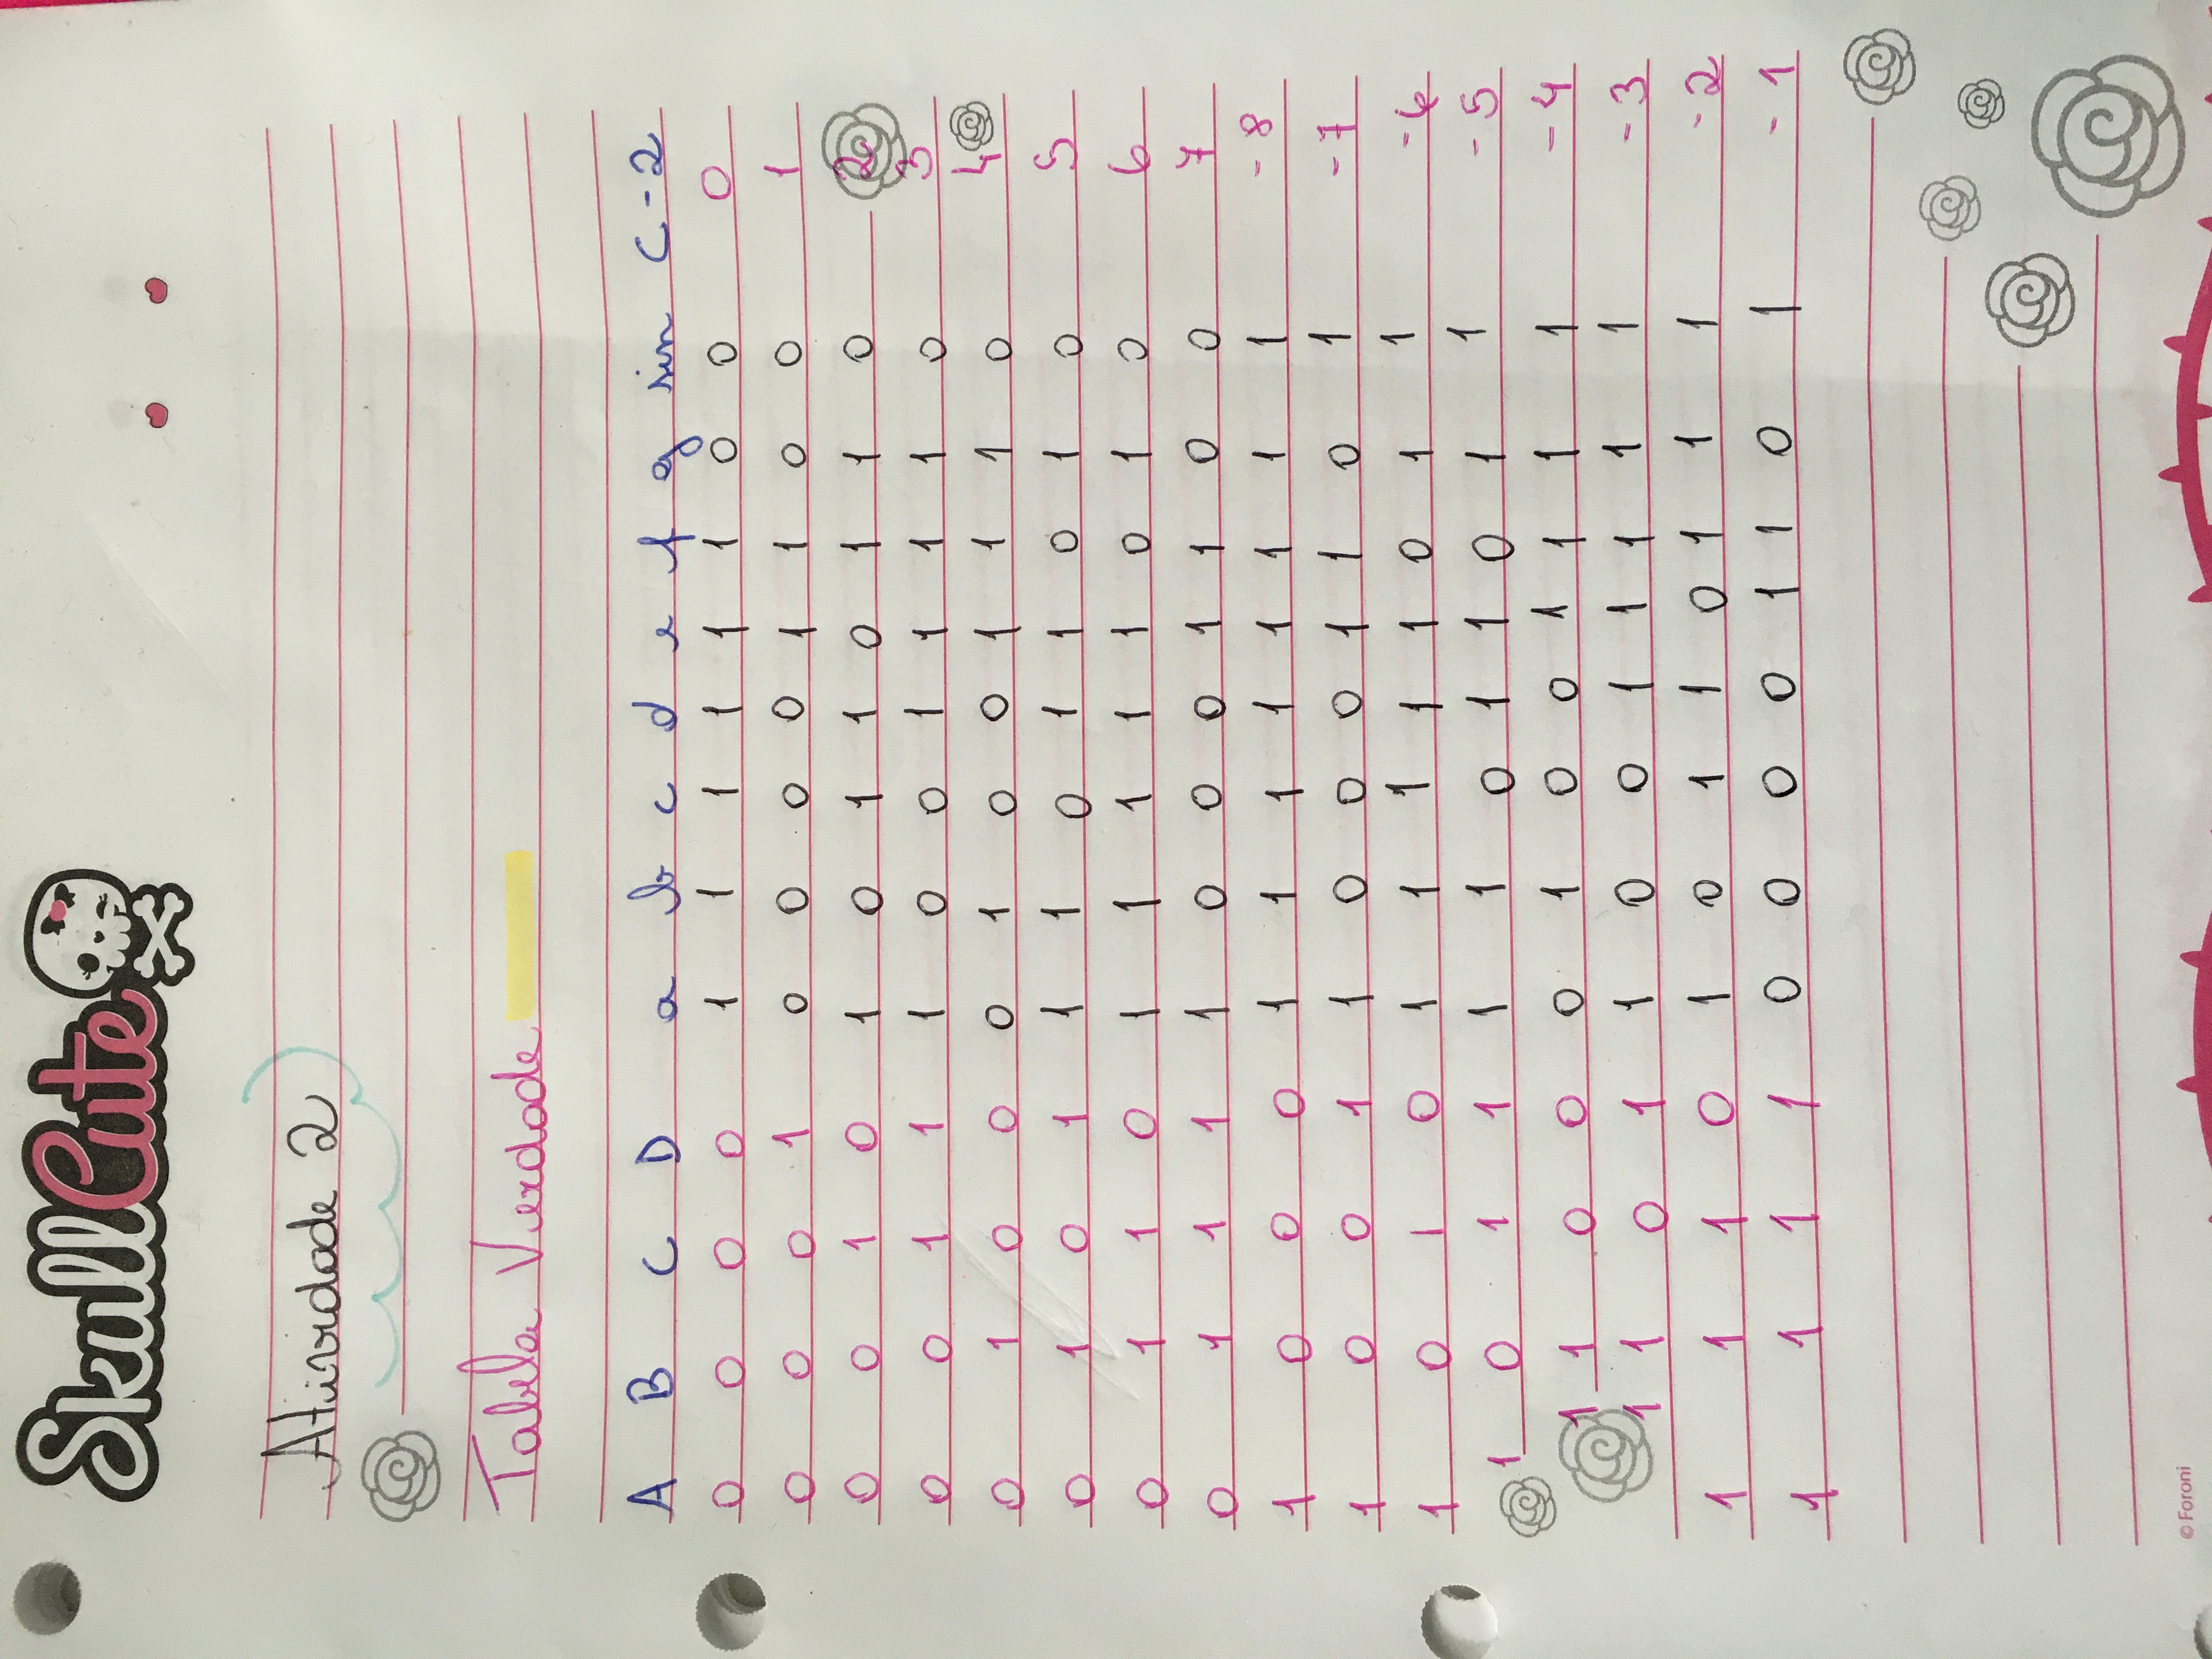 SkullCute
Atividade 2
Tabela Verdade
A B C D a b c d e f g sin C-2
0 0 0 0 1 1 1 1 1 1 0 0 0
0 0 0 1 0 0 0 0 1 1 0 0 1
0 0 1 0 1 0 1 1 0 1 1 0 2
0 0 1 1 1 0 0 1 1 1 1 0 3
0 1 0 0 0 1 0 0 1 1 1 0 4
0 1 0 1 1 1 0 1 1 0 1 0 5
0 1 1 0 1 1 1 1 1 0 1 0 6
0 1 1 1 1 0 0 0 1 1 0 0 7
1 0 0 0 1 1 1 1 1 1 1 1 -8
1 0 0 1 1 0 0 0 1 1 0 1 -7
1 0 1 0 1 1 1 1 1 0 1 1 -6
1 0 1 1 1 1 0 1 1 0 1 1 -5
1 1 0 0 0 1 0 0 1 1 1 1 -4
1 1 0 1 1 0 0 1 1 1 1 1 -3
1 1 1 0 1 0 1 1 0 1 1 1 -2
1 1 1 1 0 0 0 0 1 1 0 1 -1
© Foroni